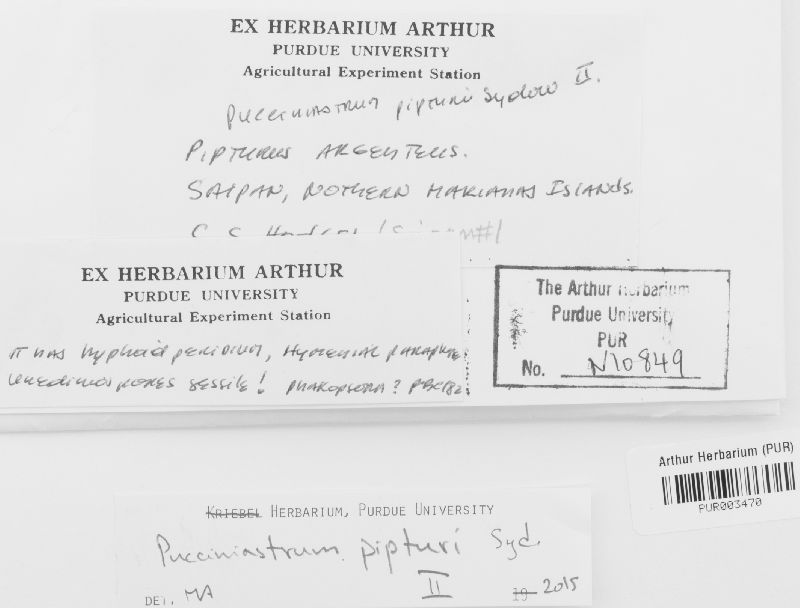 EX HERBARIUM ARTHUR
PURDUE UNIVERSITY
Agricultural Experiment Station
Pucciniastrum pipturi Sydow II.
PIPTURUS ARGENTEUS.
SAIPAN, NOTHERN MARIANAS ISLANDS.
C. S.
EX HERBARIUM ARTHUR
PURDUE UNIVERSITY
Agricultural Experiment Station
IT HAS hyphoid peridium, Hymenial paraphyses
Uredinospores sessile! PHAKOPSORA?
The Arthur Herbarium
Purdue University
PUR
No. N10849
Arthur Herbarium (PUR)
PUR003470
KRIEBEL HERBARIUM, PURDUE UNIVERSITY
Pucciniastrum pipturi Syd.
II
DET. MA 19 2015